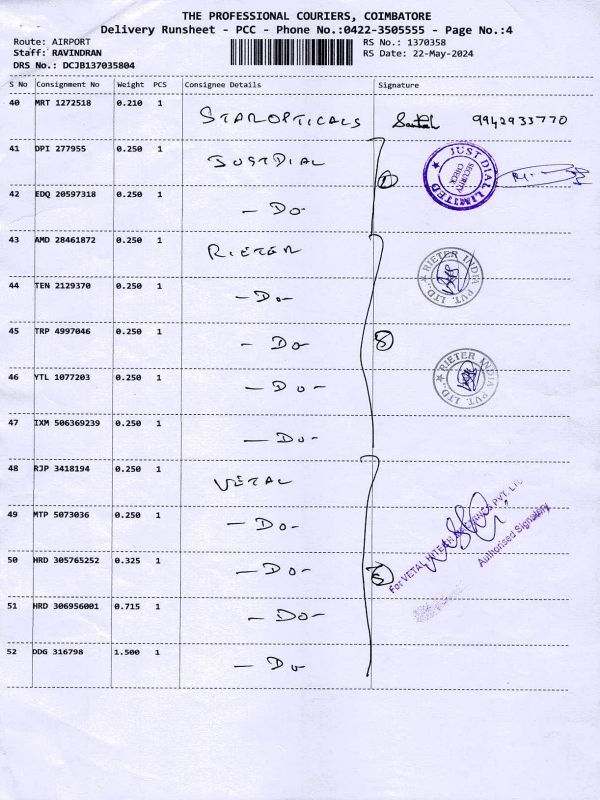 THE PROFESSIONAL COURIERS, COIMBATORE
Delivery Runsheet - PCC - Phone No.:0422-3505555 - Page No.:4
Route: AIRPORT
Staff: RAVINDRAN
DRS No.: DCJB137035804
RS No.: 1370358
RS Date: 22-May-2024
S No Consignment No Weight PCS Consignee Details Signature
40 MRT 1272518 0.210 1 STAROPTICALS 9942933770
41 DPI 277955 0.250 1 JUSTDIAL
JUST DIAL LIMITED
SECURITY CHECK
42 EDQ 20597318 0.250 1 - Do -
43 AMD 28461872 0.250 1 RIETER
RIETER INDIA PVT. LTD.,
44 TEN 2129370 0.250 1 - Do -
45 TRP 4997046 0.250 1 - Do -
46 YTL 1077203 0.250 1 - Do -
RIETER INDIA PVT. LTD.,
47 IXM 506369239 0.250 1 - Do -
48 RJP 3418194 0.250 1 VETAL
49 MTP 5073036 0.250 1 - Do -
For VETAL PVT. LTD
Authorised Signatory
50 HRD 305765252 0.325 1 - Do -
51 HRD 306956001 0.715 1 - Do -
52 DDG 316798 1.500 1 - Do